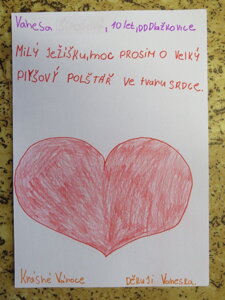 Vanesa , 10 let, DD Dlažkovice
Milý Ježíšku, moc PROSÍM O Velký
PlyŠový POLŠTÁŘ ve tvaru SRDCE.
Krásné Vánoce
Děkuji Vaneska.